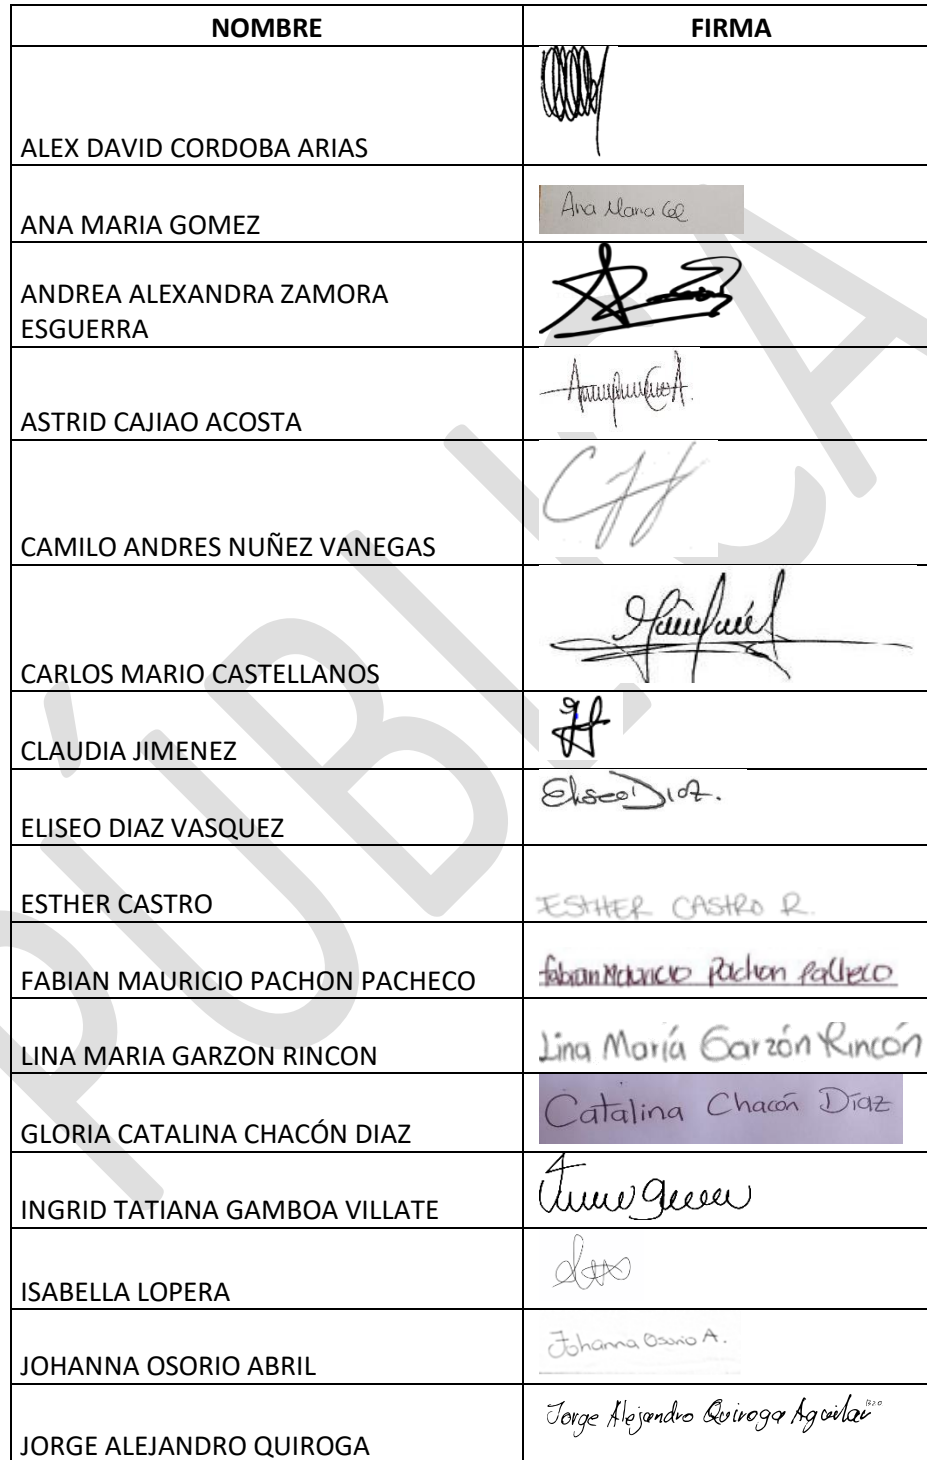 NOMBRE FIRMA
ALEX DAVID CORDOBA ARIAS
ANA MARIA GOMEZ Ana Maria
ANDREA ALEXANDRA ZAMORA
ESGUERRA
ASTRID CAJIAO ACOSTA
CAMILO ANDRES NUÑEZ VANEGAS
CARLOS MARIO CASTELLANOS
CLAUDIA JIMENEZ
ELISEO DIAZ VASQUEZ Eliseo Diaz.
ESTHER CASTRO ESTHER CASTRO R.
FABIAN MAURICIO PACHON PACHECO fabian Mauricio Pachon Pacheco
LINA MARIA GARZON RINCON Lina María Garzón Rincón
GLORIA CATALINA CHACÓN DIAZ Catalina Chacón Díaz
INGRID TATIANA GAMBOA VILLATE
ISABELLA LOPERA
JOHANNA OSORIO ABRIL Johanna Osorio A.
JORGE ALEJANDRO QUIROGA Jorge Alejandro Quiroga Aguilar
PÚBLICA